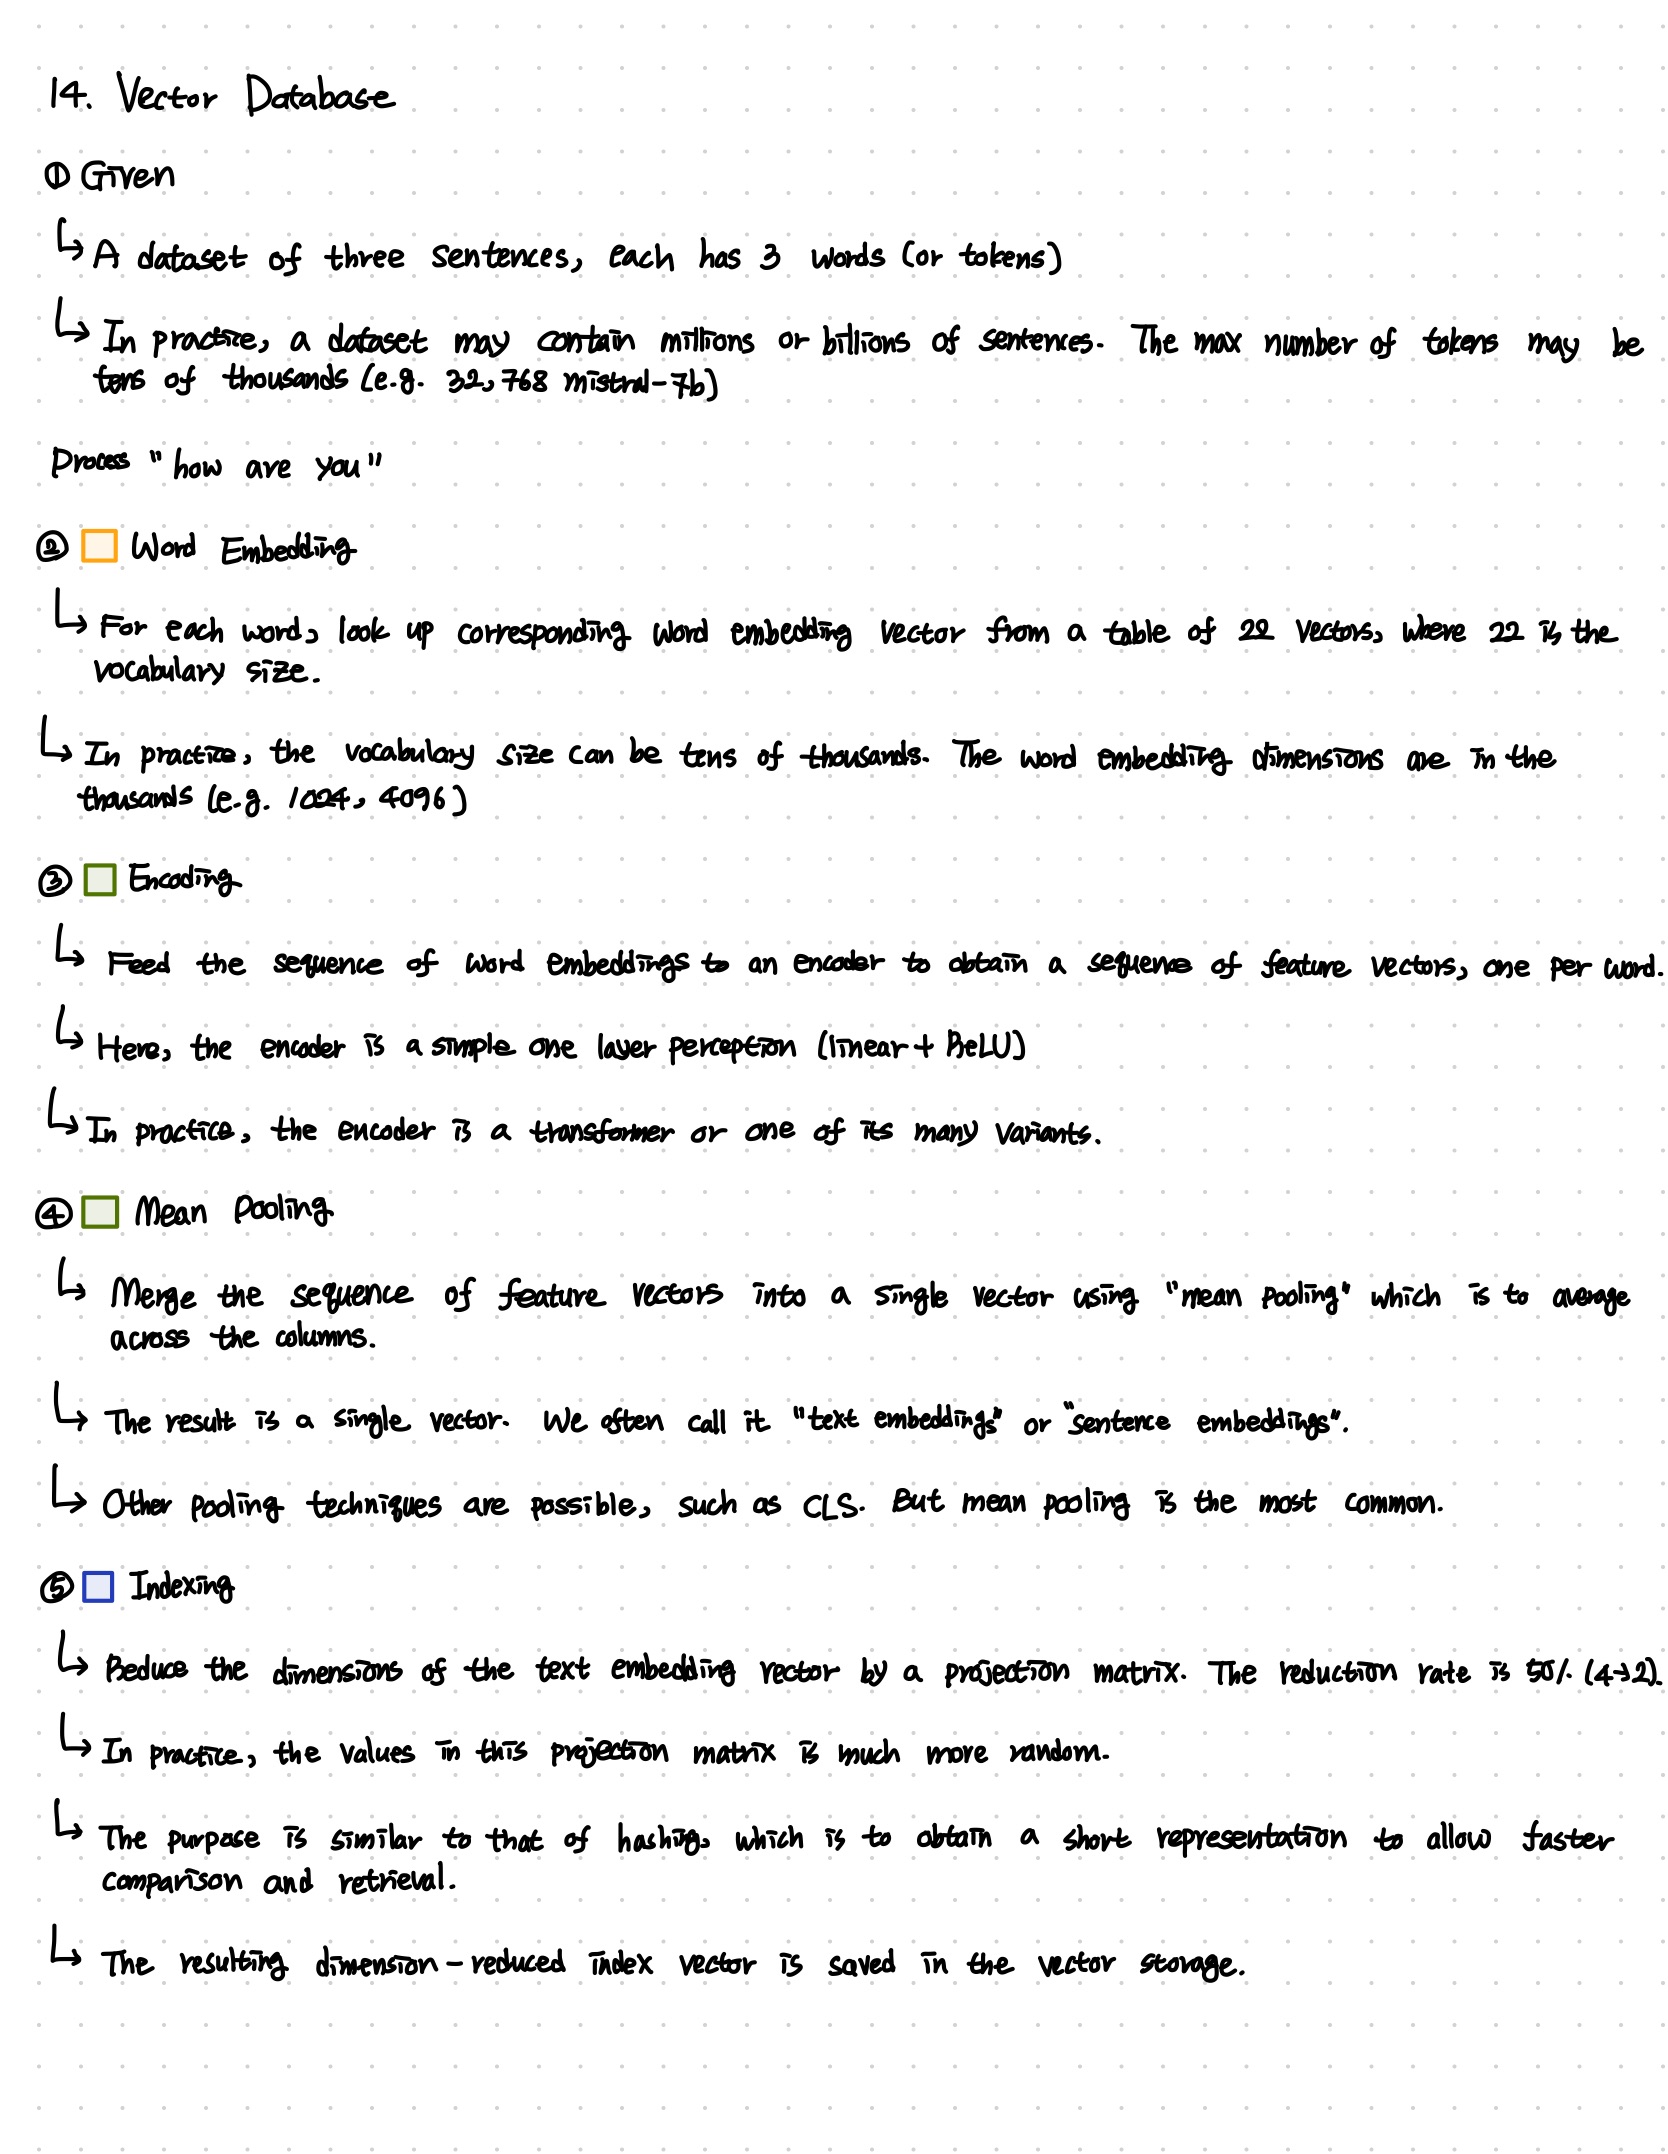 14. Vector Database
① Given
↳ A dataset of three sentences, each has 3 words (or tokens)
↳ In practice, a dataset may contain millions or billions of sentences. The max number of tokens may be
tens of thousands (e.g. 32,768 mistral-7b)
Process "how are you"
② Word Embedding
↳ For each word, look up corresponding word embedding vector from a table of 22 vectors, where 22 is the
vocabulary size.
↳ In practice, the vocabulary size can be tens of thousands. The word embedding dimensions are in the
thousands (e.g. 1024, 4096)
③ Encoding
↳ Feed the sequence of word embeddings to an encoder to obtain a sequence of feature vectors, one per word.
↳ Here, the encoder is a simple one layer perception (linear + ReLU)
↳ In practice, the encoder is a transformer or one of its many variants.
④ Mean Pooling
↳ Merge the sequence of feature vectors into a single vector using "mean pooling" which is to average
across the columns.
↳ The result is a single vector. We often call it "text embeddings" or "sentence embeddings".
↳ Other pooling techniques are possible, such as CLS. But mean pooling is the most common.
⑤ Indexing
↳ Reduce the dimensions of the text embedding vector by a projection matrix. The reduction rate is 50% (4→2).
↳ In practice, the values in this projection matrix is much more random.
↳ The purpose is similar to that of hashing, which is to obtain a short representation to allow faster
comparison and retrieval.
↳ The resulting dimension-reduced index vector is saved in the vector storage.